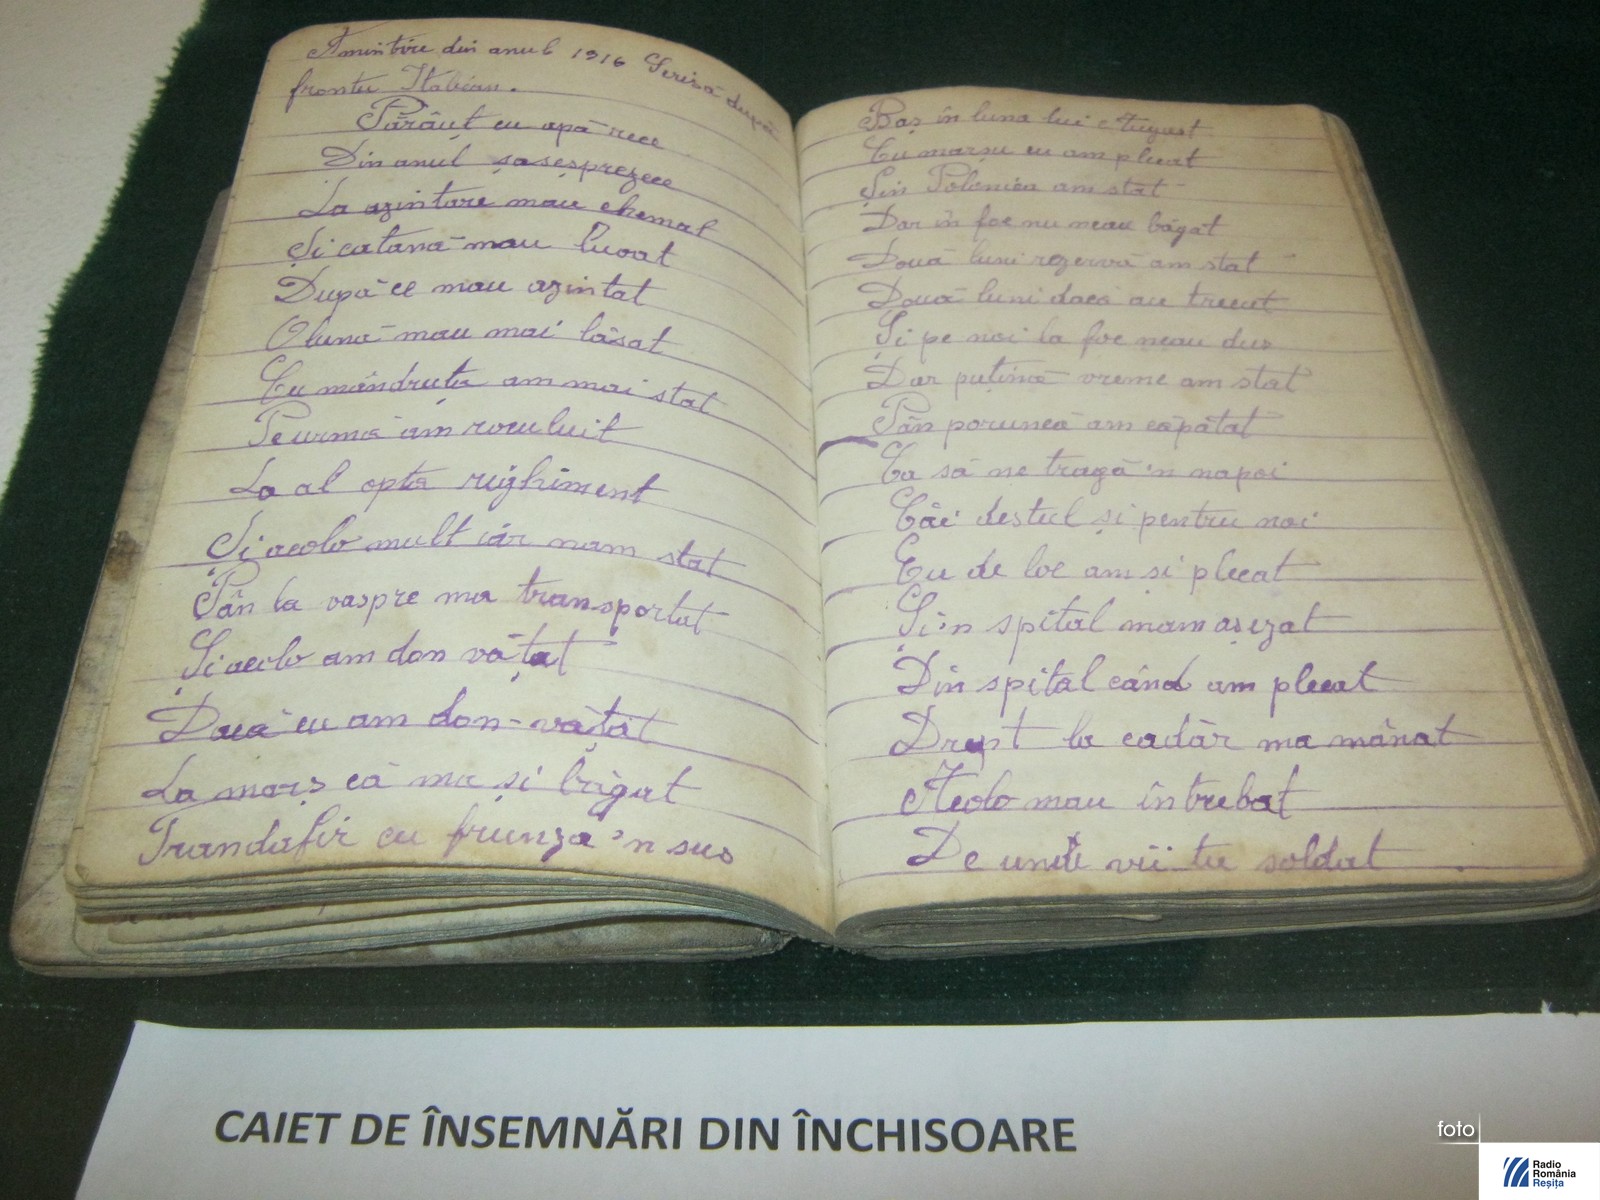 Amintire din anul 1916 Scrisă după
frontu Italian.
Părăuț cu apă rece
Din anul șasesprezece
La azintare mau chemat
Și catană mau luoat
După ce mau azintat
O lună mau mai lăsat
Cu mândruța am mai stat
Pe urmă am rocu luit
La al opta righiment
Și acolo mult iar nam stat
Pân la vaspre ma transportat
Și acolo am don vățat
Dacă eu am don-vățat
La marș că ma și băgat
Trandafir cu frunza 'n sus
Baș în luna lui August
Cu marșu eu am plecat
Șin Polonica am stat
Dar în foc nu neau băgat
Două luni rezervă am stat
Două luni dacă au trecut
Și pe noi la foc neau dus
Dar puțină vreme am stat
Pân poruncă am căpătat
Ca să ne tragă 'n napoi
Căci destul și pentru noi
Eu de loc am și plecat
Și 'n spital mam așezat
Din spital când am plecat
Drept la cadăr ma mânat
Acolo mau întrebat
De unde vii tu soldat
CAIET DE ÎNSEMNĂRI DIN ÎNCHISOARE
foto
Radio
România
Reșița